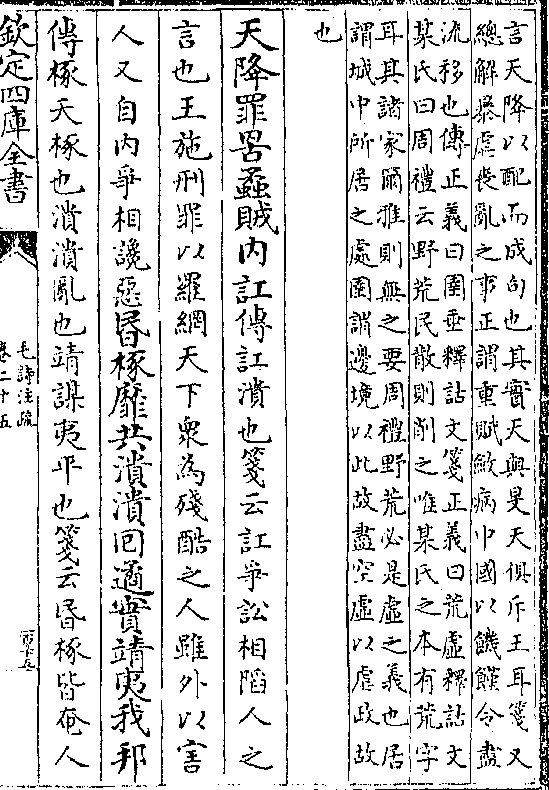 言天降以配而成句也其實天與旻天俱斥王耳箋又
總解暴虐喪亂之事正謂重賦斂病中國以饑饉令盡
流移也傳正義曰圉垂釋詁文箋正義曰荒虛釋詁文
某氏曰周禮云野荒民散則削之唯某氏之本有荒字
耳其諸家爾雅則無之要周禮野荒必是虛之義也居
謂城中所居之處圉謂邊境以此故盡空虛以虐政故
也
天降罪罟蟊賊内訌傳訌潰也箋云訌爭訟相陷人之
言也王施刑罪以羅網天下衆為殘酷之人雖外以害
人又自内爭相讒惡昬椓靡共潰潰囘遹實靖夷我邦
傳椓夭椓也潰潰亂也靖謀夷平也箋云昬椓皆奄人
欽定四庫全書
毛詩注疏
卷二十五